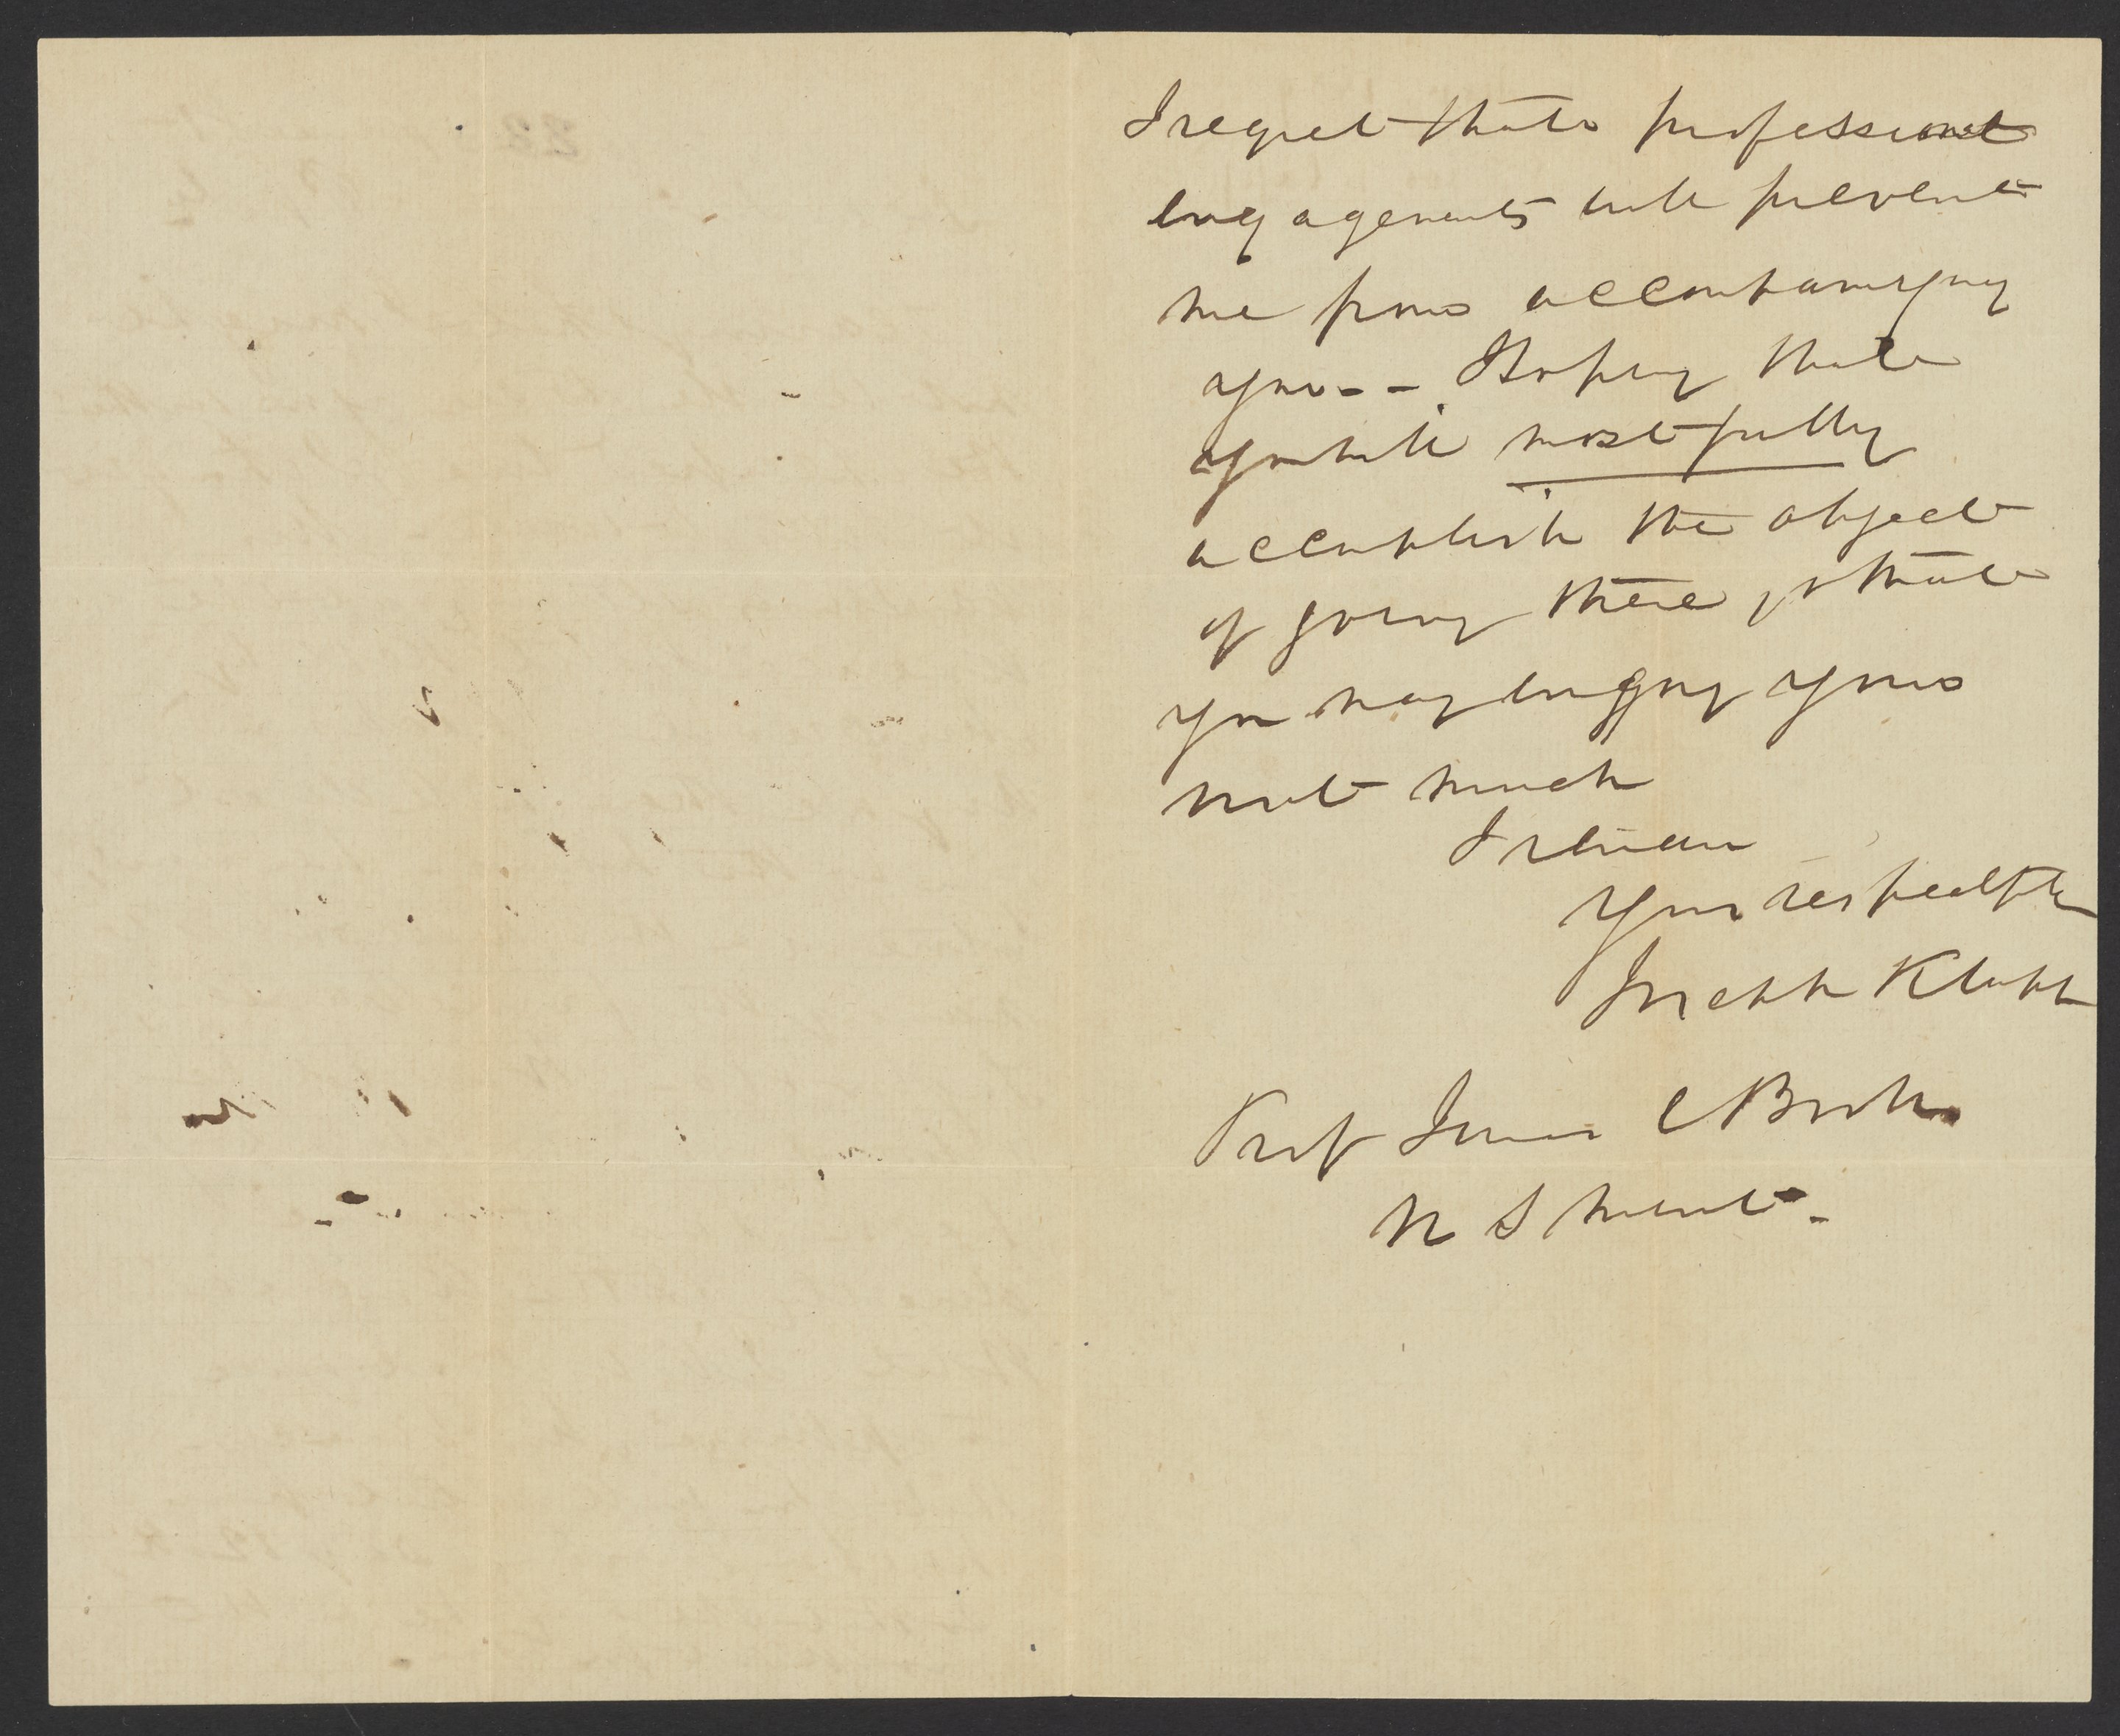 I regret that professional
engagements will prevent
me from accompanying
you - - Hoping that
you will most fully
accomplish the object
of going there, & that
you may enjoy your
visit much
I remain
Your respectfly
Joseph Klapp
Prof James C Booth
U S Mint -